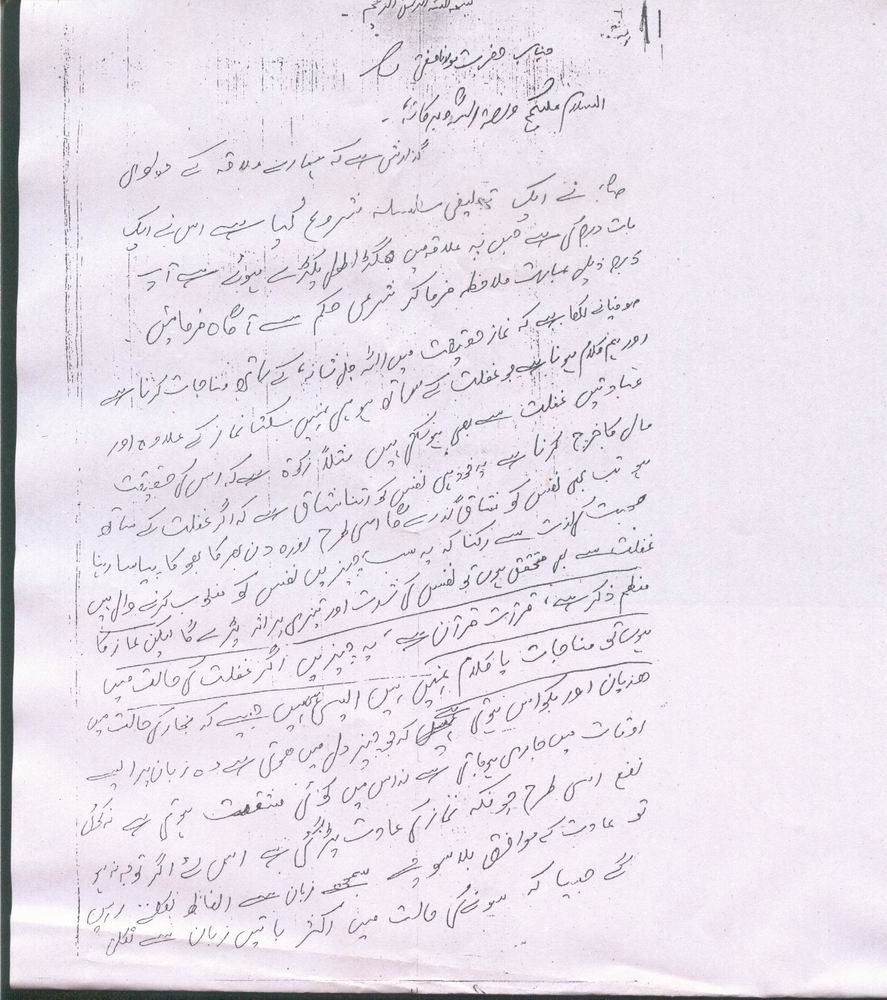 بسم اللہ الرحمن الرحیم
جناب حضرت مولانا مفتی صاحب
السلام علیکم ورحمۃ اللہ وبرکاتہ،
گذارش ہے کہ ہمارے علاقہ کے مولوی
صاحب نے ایک تبلیغی سلسلہ شروع کیا ہے اس نے ایک
بات درج کی ہے جس پہ علاقہ میں جھگڑا طول پکڑے ہوئے ہے آپ
درج ذیل عبارت ملاحظہ فرما کر شرعی حکم سے آگاہ فرمائیں
صوفیا نے لکھا ہے کہ نماز حقیقت میں اللہ جل شانہ، کے ساتھ مناجات کرنا ہے
اور ہم کلام ہونا ہے جو غفلت کے ساتھ ہو ہی نہیں سکتا نماز کے علاوہ اور
عبادتیں غفلت سے بھی ہو سکتی ہیں مثلاً زکوٰۃ ہے کہ اس کی حقیقت
مال کا خرچ کرنا ہے یہ خود ہی نفس کو اتنا شاق ہے کہ اگر غفلت کے ساتھ
ہو تب بھی نفس کو شاق گذرے گا اسی طرح روزہ دن بھر کا بھوکا پیاسا رہنا
صحبت کی لذت سے رکنا کہ یہ سب چیزیں نفس کو مغلوب کرنے والی ہیں
غفلت سے بھی متحقق ہوں تو نفس کی شدت اور تیزی پر اثر پڑے گا لیکن نماز کا
معظم ذکر ہے، قرآت قرآن ہے، یہ چیزیں اگر غفلت کی حالت میں
ہوں تو مناجات یا کلام نہیں ہیں ایسی ہی ہیں جیسے کہ بخار کی حالت میں
ہذیان اور بکواس ہوتی ہے کہ جو چیز دل میں ہوتی ہے وہ زبان پر ایسے
اوقات میں جاری ہو جاتی ہے نہ اس میں کوئی مشقت ہوتی ہے نہ کوئی
نفع اسی طرح چونکہ نماز کی عادت پڑ گئی ہے اس لئے اگر توجہ نہ ہو
تو عادت کے موافق بلا سوچے سمجھے زبان سے الفاظ نکلتے رہیں
گے جیسا کہ سونے کی حالت میں اکثر باتیں زبان سے نکل